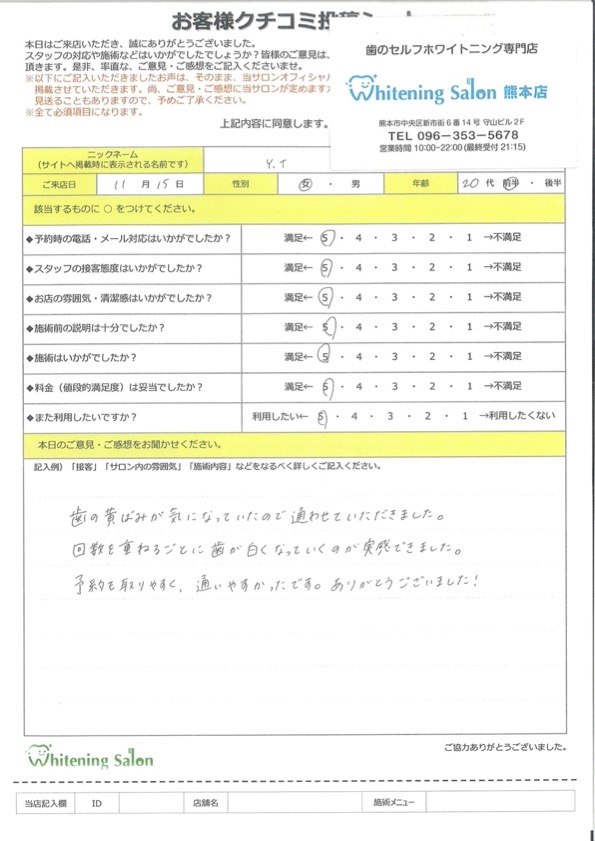 お客様クチコミ投稿シート
本日はご来店いただき、誠にありがとうございました。
スタッフの対応や施術などはいかがでしたでしょうか？皆様のご意見は、
頂きます。是非、率直な、ご意見・ご感想をご記入くださいませ。
※以下にご記入いただきましたお声は、そのまま、当サロンオフィシャル
掲載させていただきます。尚、ご意見・ご感想に当サロンが定めます
見送ることもありますので、予めご了承ください。
※全て必須項目になります。
上記内容に同意します。
歯のセルフホワイトニング専門店
Whitening Salon 熊本店
熊本市中央区新市街6番14号 守山ビル2F
TEL 096-353-5678
営業時間 10:00~22:00 (最終受付 21:15)
ニックネーム
（サイトへ掲載時に表示される名前です）
Y.T
ご来店日 11 月 15 日 性別 女 ・ 男 年齢 20 代 前半 ・ 後半
該当するものに ○ をつけてください。
◆予約時の電話・メール対応はいかがでしたか？ 満足← 5 ・ 4 ・ 3 ・ 2 ・ 1 →不満足
◆スタッフの接客態度はいかがでしたか？ 満足← 5 ・ 4 ・ 3 ・ 2 ・ 1 →不満足
◆お店の雰囲気・清潔感はいかがでしたか？ 満足← 5 ・ 4 ・ 3 ・ 2 ・ 1 →不満足
◆施術前の説明は十分でしたか？ 満足← 5 ・ 4 ・ 3 ・ 2 ・ 1 →不満足
◆施術はいかがでしたか？ 満足← 5 ・ 4 ・ 3 ・ 2 ・ 1 →不満足
◆料金（値段的満足度）は妥当でしたか？ 満足← 5 ・ 4 ・ 3 ・ 2 ・ 1 →不満足
◆また利用したいですか？ 利用したい← 5 ・ 4 ・ 3 ・ 2 ・ 1 →利用したくない
本日のご意見・ご感想をお聞かせください。
記入例）「接客」「サロン内の雰囲気」「施術内容」などをなるべく詳しくご記入ください。
歯の黄ばみが気になっていたので通わせていただきました。
回数を重ねるごとに歯が白くなっていくのが実感できました。
予約も取りやすく、通いやすかったです。ありがとうございました！
Whitening Salon
ご協力ありがとうございました。
当店記入欄 ID 店舗名 施術メニュー